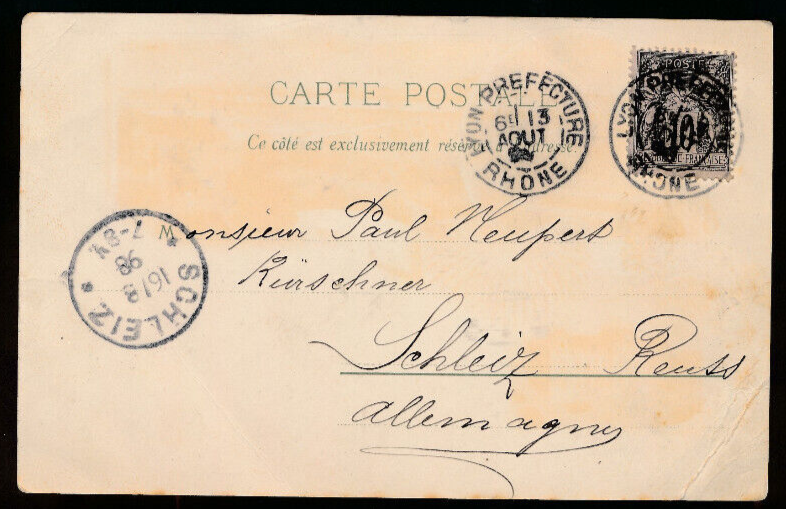 CARTE POSTALE
Ce côté est exclusivement réservé à l'adresse
LYON PREFECTURE
13
AOUT
RHONE
POSTE
LYON PREFECTURE
RHONE
Monsieur Paul Neupert
Kürschner
Schleiz Reuss
Allemagne
SCHLEIZ
16/8
98
7-8V